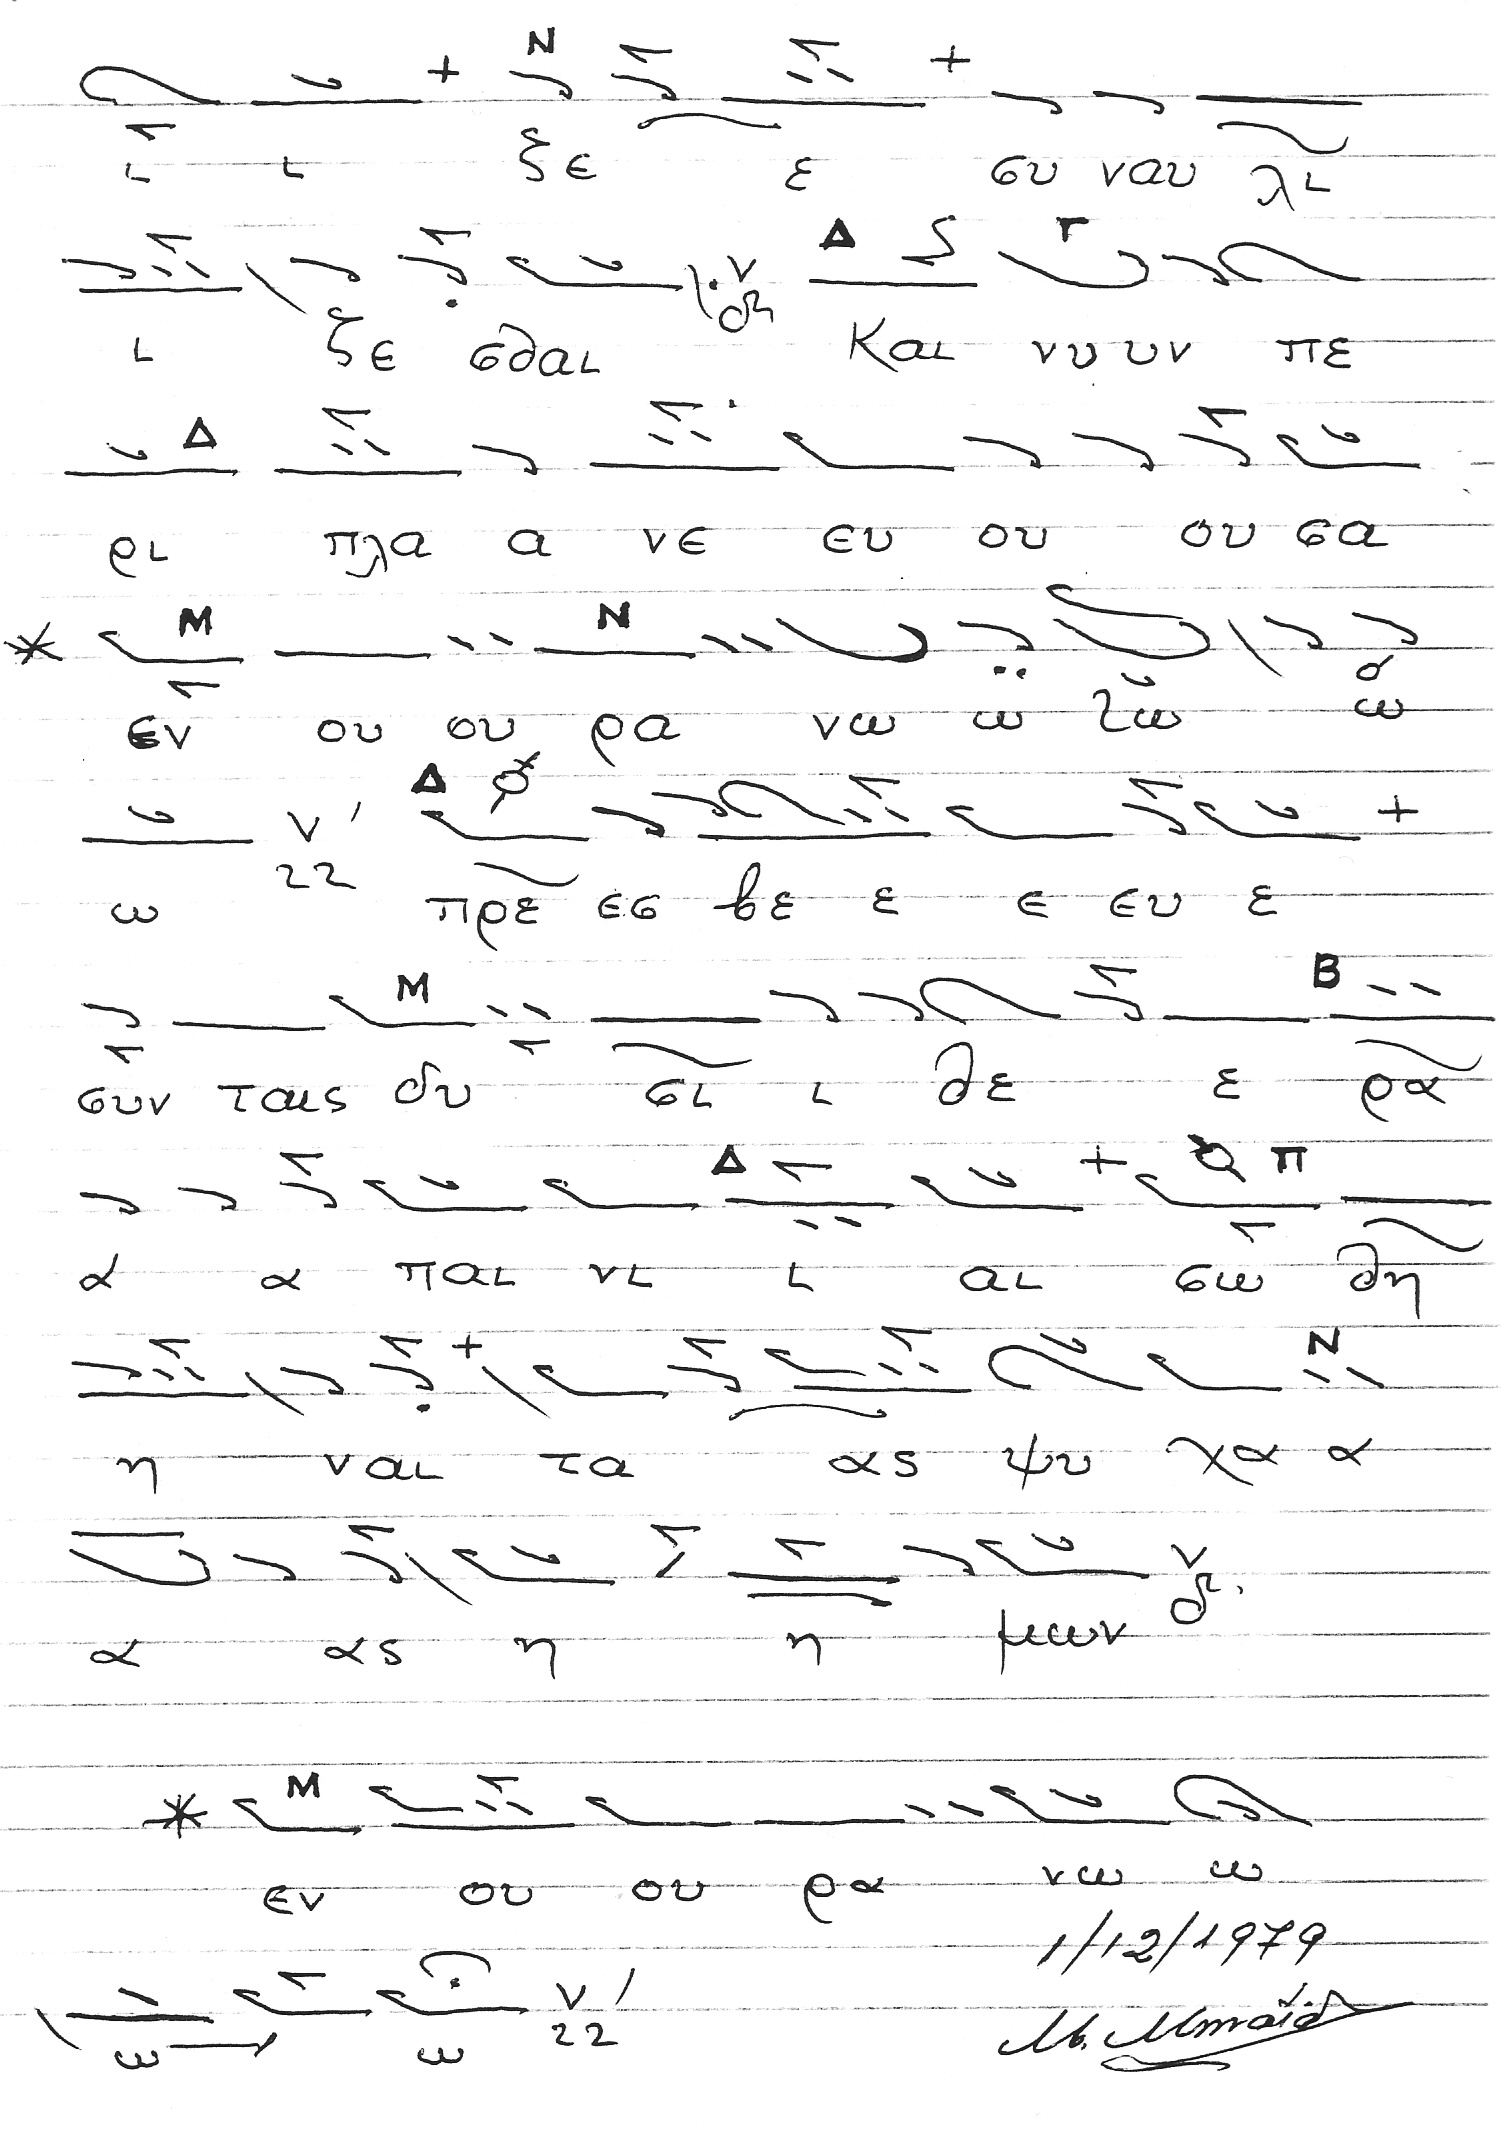 Ν
ι ι ξε ε συ ναυ λι
ν Δ Γ
ι ζε σθαι και νυ υν πε
Δ
ρι πλα α νε ευ ου ου σα
* Μ Ν
εν ου ου ρα νω ω τω ω
Δ
ω ν' πρε εσ βε ε ε ευ ε
Μ Β
συν ταις δυ σι ι θε ε ρα
Δ Π
α α παι νι ι αι σω θη
Ν
η ναι τα ας ψυ χα α
ν
α ας η η μων
* Μ
εν ου ου ρα νω ω
1/12/1979
ν'
ω ω